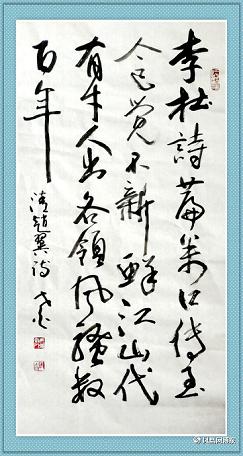 李杜詩篇萬口傳至
今已覺不新鮮江山代
有才人出各領風騷數
百年
清趙翼詩